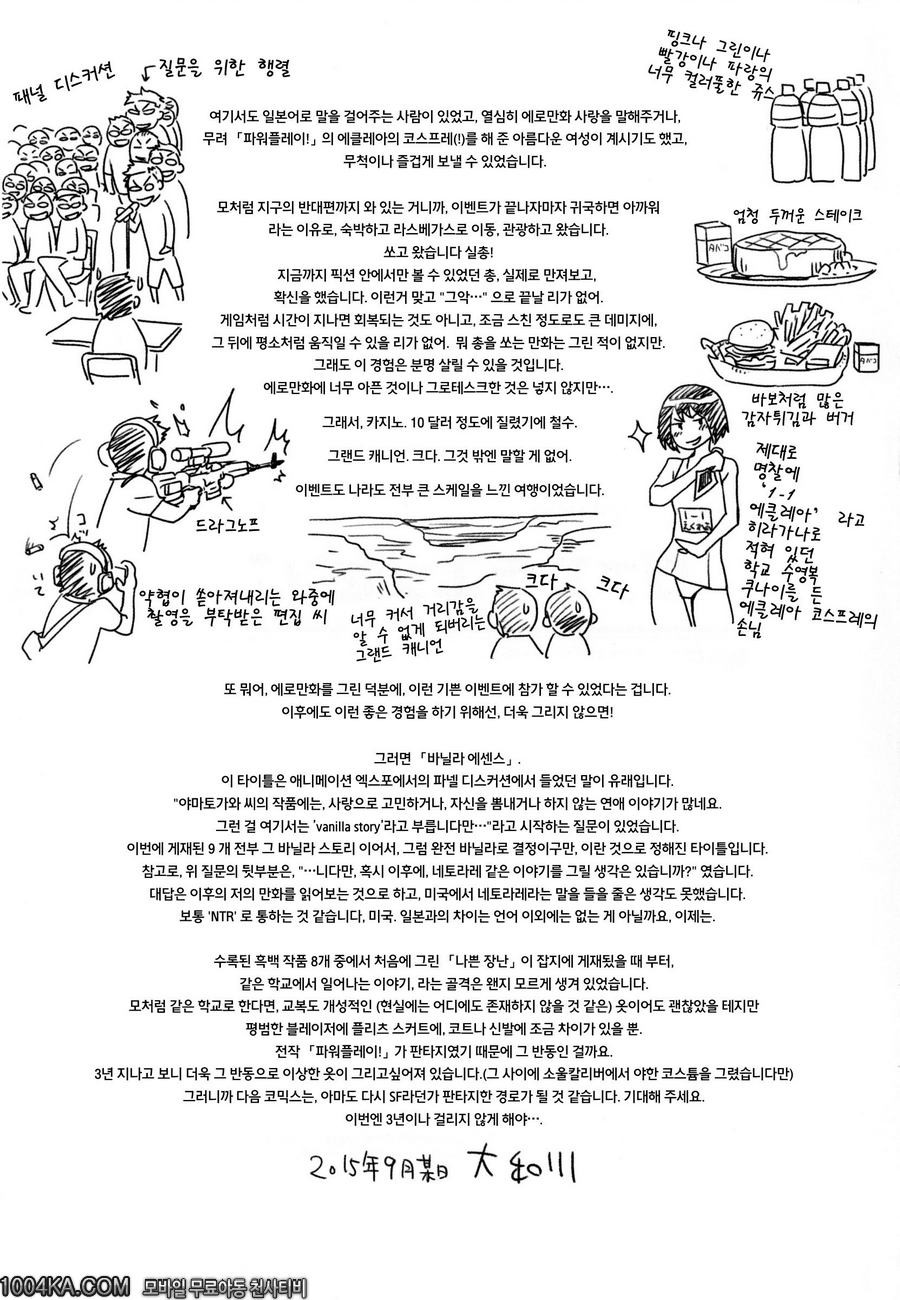 패널 디스커션
질문을 위한 행렬
핑크나 그린이나
빨강이나 파랑의
너무 컬러풀한 쥬스
여기서도 일본어로 말을 걸어주는 사람이 있었고, 열심히 에로만화 사랑을 말해주거나,
무려 「파워플레이!」의 에클레아의 코스프레(!)를 해 준 아름다운 여성이 계시기도 했고,
무척이나 즐겁게 보낼 수 있었습니다.
모처럼 지구의 반대편까지 와 있는 거니까, 이벤트가 끝나자마자 귀국하면 아까워
라는 이유로, 숙박하고 라스베가스로 이동, 관광하고 왔습니다.
쏘고 왔습니다 실총!
지금까지 픽션 안에서만 볼 수 있었던 총, 실제로 만져보고,
확신을 했습니다. 이런거 맞고 "그악…" 으로 끝날 리가 없어.
게임처럼 시간이 지나면 회복되는 것도 아니고, 조금 스친 정도로도 큰 데미지에,
그 뒤에 평소처럼 움직일 수 있을 리가 없어. 뭐 총을 쏘는 만화는 그린 적이 없지만.
그래도 이 경험은 분명 살릴 수 있을 것입니다.
에로만화에 너무 아픈 것이나 그로테스크한 것은 넣지 않지만….
엄청 두꺼운 스테이크
바보처럼 많은
감자튀김과 버거
그래서, 카지노. 10 달러 정도에 질렸기에 철수.
그랜드 캐니언. 크다. 그것 밖엔 말할 게 없어.
이벤트도 나라도 전부 큰 스케일을 느낀 여행이었습니다.
드라그노프
약협이 쏟아져내리는 와중에
촬영을 부탁받은 편집 씨
너무 커서 거리감을
알 수 없게 되버리는
그랜드 캐니언
크다
크다
제대로
명찰에
'1-1
에클레아' 라고
히라가나로
적혀 있던
학교 수영복
쿠나이를 든
에클레아 코스프레의
손님
1-1
えくれあ
또 뭐어, 에로만화를 그린 덕분에, 이런 기쁜 이벤트에 참가 할 수 있었다는 겁니다.
이후에도 이런 좋은 경험을 하기 위해선, 더욱 그리지 않으면!
그러면 「바닐라 에센스」.
이 타이틀은 애니메이션 엑스포에서의 파넬 디스커션에서 들었던 말이 유래입니다.
"야마토가와 씨의 작품에는, 사랑으로 고민하거나, 자신을 뽐내거나 하지 않는 연애 이야기가 많네요.
그런 걸 여기서는 'vanilla story'라고 부릅니다만…"라고 시작하는 질문이 있었습니다.
이번에 게재된 9 개 전부 그 바닐라 스토리 이어서, 그럼 완전 바닐라로 결정이구만, 이란 것으로 정해진 타이틀입니다.
참고로, 위 질문의 뒷부분은, "…니다만, 혹시 이후에, 네토라레 같은 이야기를 그릴 생각은 있습니까?" 였습니다.
대답은 이후의 저의 만화를 읽어보는 것으로 하고, 미국에서 네토라레라는 말을 들을 줄은 생각도 못했습니다.
보통 'NTR' 로 통하는 것 같습니다, 미국. 일본과의 차이는 언어 이외에는 없는 게 아닐까요, 이제는.
수록된 흑백 작품 8개 중에서 처음에 그린 「나쁜 장난」이 잡지에 게재됬을 때 부터,
같은 학교에서 일어나는 이야기, 라는 골격은 왠지 모르게 생겨 있었습니다.
모처럼 같은 학교로 한다면, 교복도 개성적인 (현실에는 어디에도 존재하지 않을 것 같은) 옷이어도 괜찮았을 테지만
평범한 블레이저에 플리츠 스커트에, 코트나 신발에 조금 차이가 있을 뿐.
전작 「파워플레이!」가 판타지였기 때문에 그 반동인 걸까요.
3년 지나고 보니 더욱 그 반동으로 이상한 옷이 그리고싶어져 있습니다.(그 사이에 소울칼리버에서 야한 코스튬을 그렸습니다만)
그러니까 다음 코믹스는, 아마도 다시 SF라던가 판타지한 경로가 될 것 같습니다. 기대해 주세요.
이번엔 3년이나 걸리지 않게 해야….
2015年9月某日 大和川
1004KA.COM 모바일 무료야동 천사티비